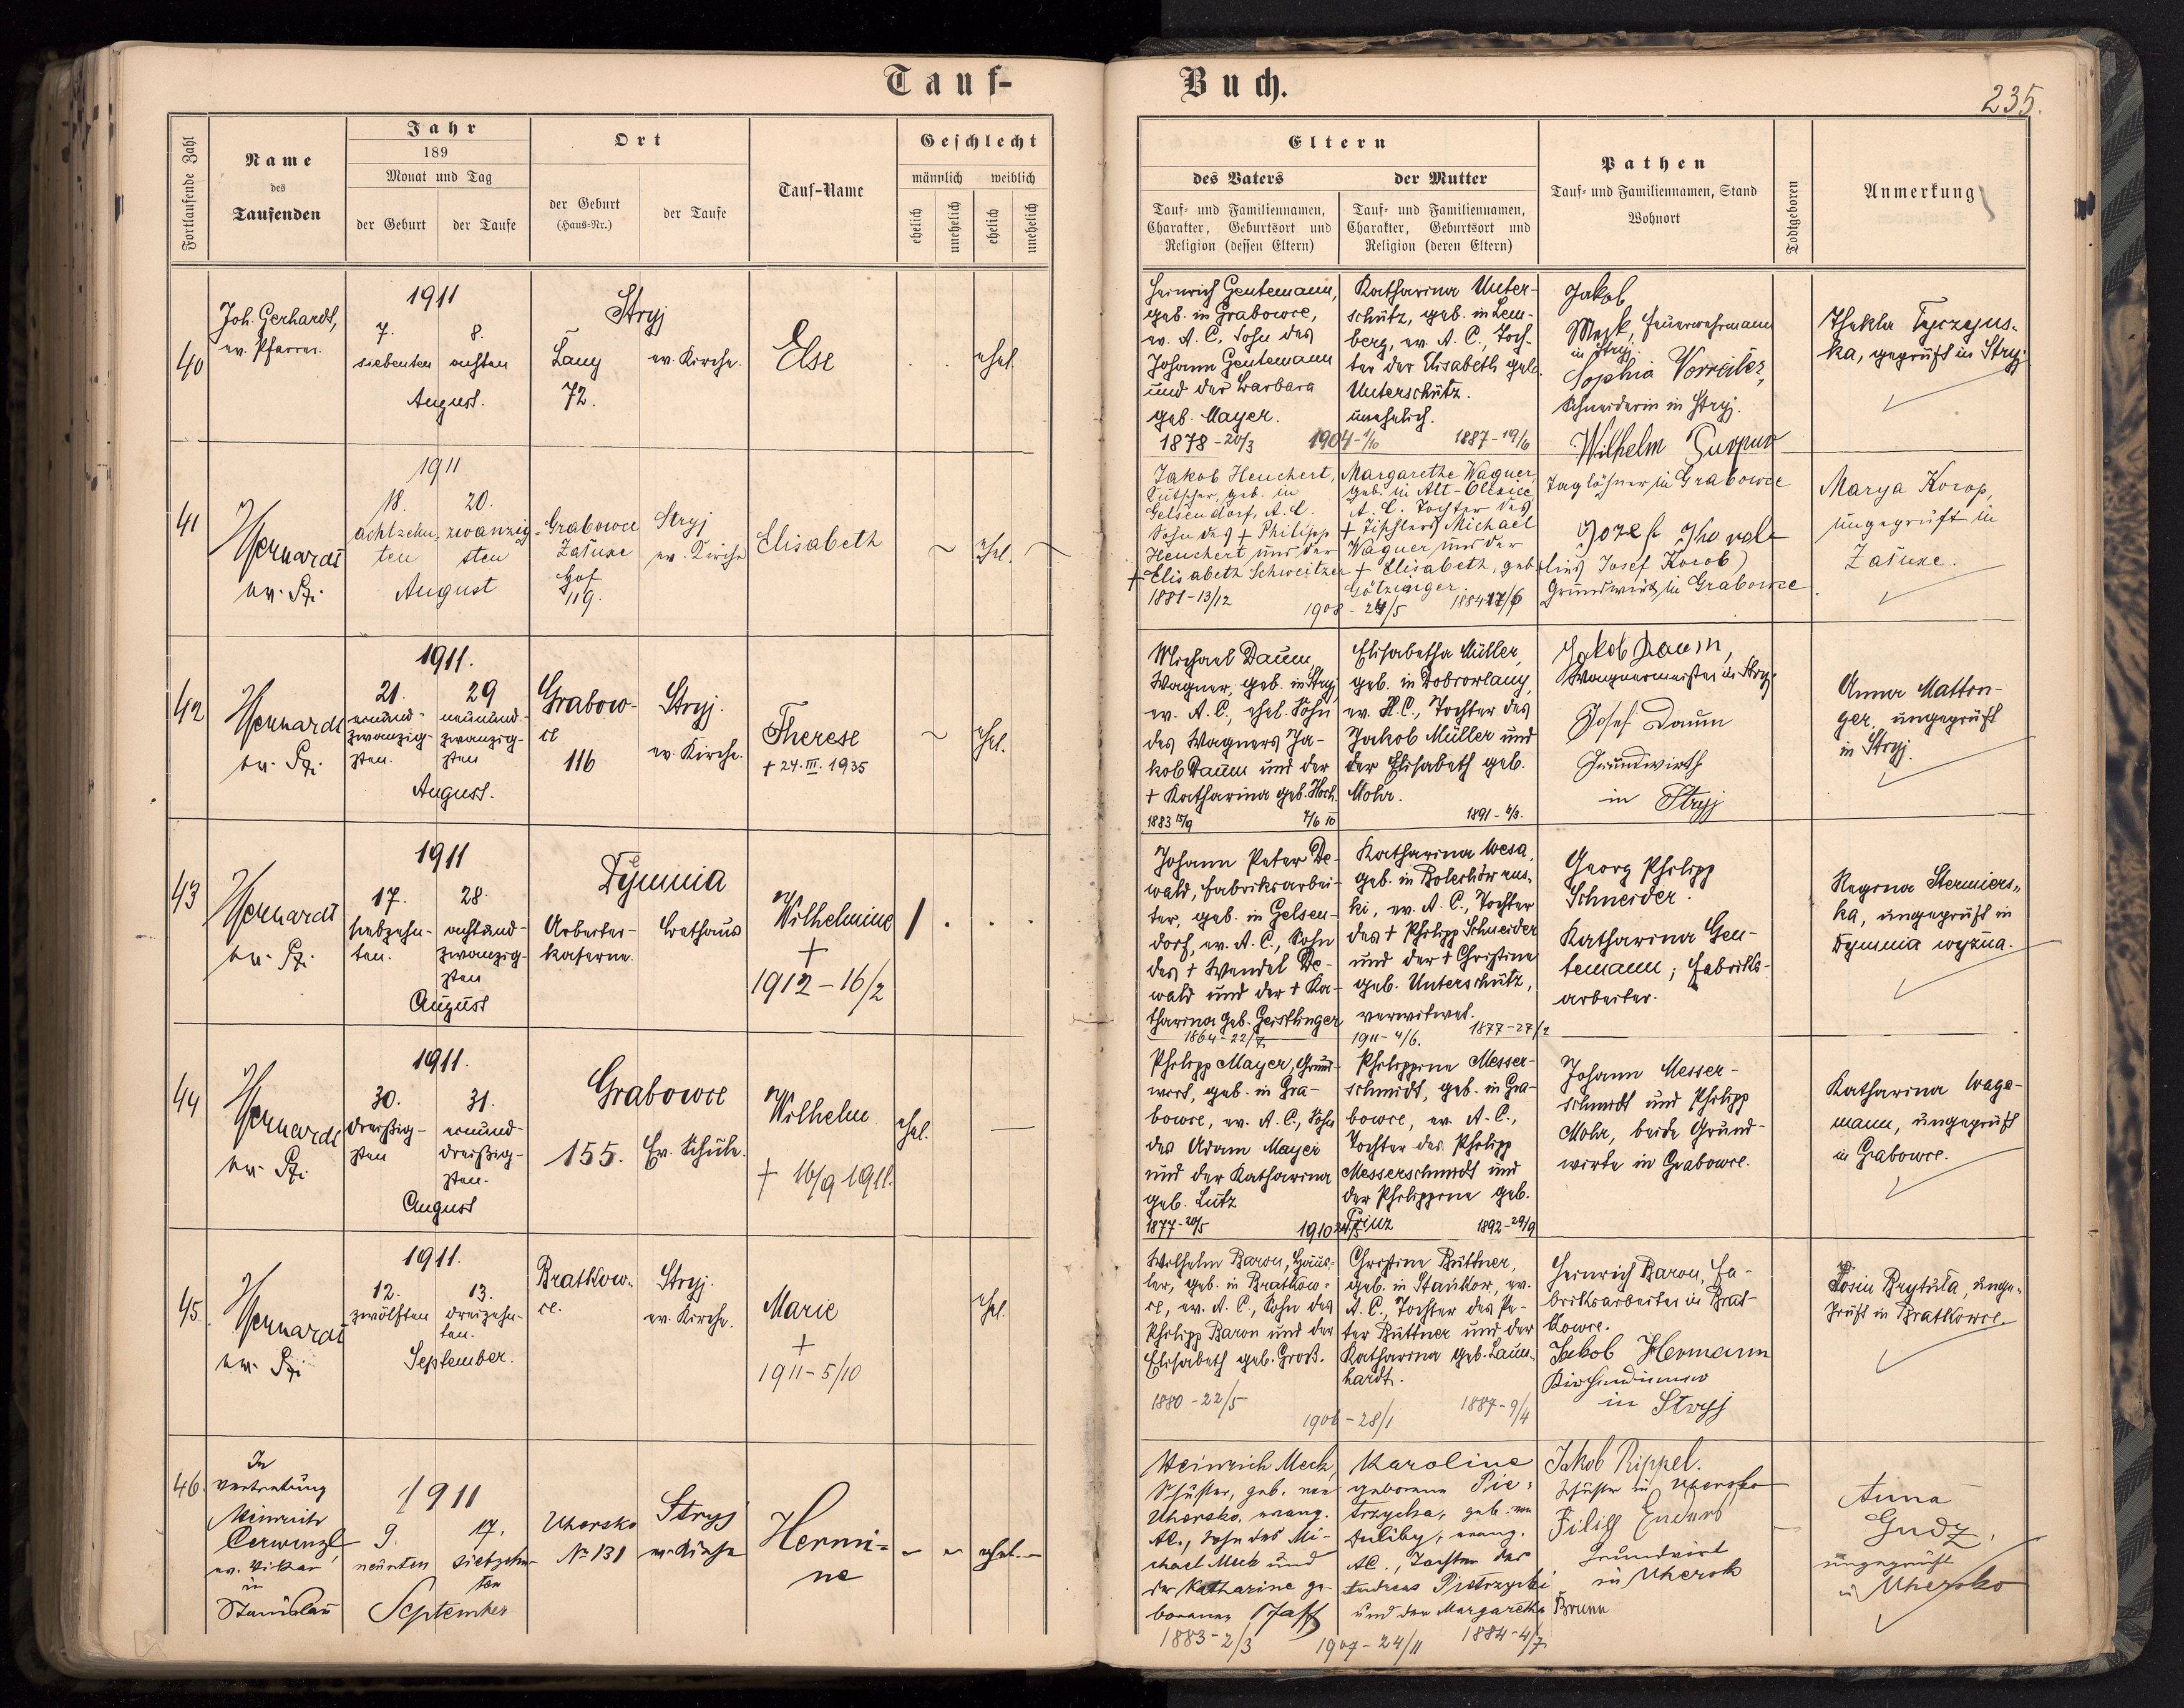 Tauf-
Buch.
235.
Fortlaufende Zahl
Name
des
Taufenden
Jahr
189
Monat und Tag
der Geburt
der Taufe
Ort
der Geburt
(Haus-Nr.)
der Taufe
Tauf-Name
Geschlecht
männlich
weiblich
ehelich
unehelich
ehelich
unehelich
Eltern
des Vaters
Tauf- und Familiennamen,
Charakter, Geburtsort und
Religion (dessen Eltern)
der Mutter
Tauf- und Familiennamen,
Charakter, Geburtsort und
Religion (deren Eltern)
Pathen
Tauf- und Familiennamen, Stand
Wohnort
Todtgeboren
Anmerkung
40
Joh. Gerhardt,
ev. Pfarrer.
1911
7.
siebenten
8.
achten
August.
Lany
72.
Stryj
ev. Kirche.
Else
ehel.
Heinrich Gentemann,
geb. in Grabowce,
ev. A. C., Sohn des
Johann Gentemann
und der Barbara
geb. Mayer.
1878-20/3
1904-1/10
Katharina Unter-
schütz, geb. in Lem-
berg, ev. A. C., Toch-
ter der Elisabeth geb.
Unterschütz.
unehelich.
1887-19/6
Jakob
Meck, Feuerwehrmann
in Stryj.
Sophia Vorreiter,
Schneiderin in Stryj.
Thekla
geprüft in Stryj.
41
Gerhardt
ev. Pfr.
1911
18.
achtzehn-
ten
20.
zwanzig-
sten
August
Grabowce
Zatuze
Hof
119.
Stryj
ev. Kirche
Elisabeth
ehel.
Jakob Heuchert,
Kutscher, geb. in
Gelsendorf, A. C.
Sohn des + Philipp
Heuchert und der
+ Elisabeth Schweitzer
1881-13/12
1908-24/5
Margarethe Wagner,
geb. in Alt-Olexice
A. C. Tochter des
+ Tischlers Michael
Wagner und der
+ Elisabeth, geb.
Götzinger.
1884 17/6
Wilhelm
Taglöhner in Grabowce
Josef
(lies Josef Korob)
Grundwirth in Grabowce
Marya Korop,
ungeprüft in
Zatuze.
42
Gerhardt
ev. Pfr.
1911.
21.
einund-
zwanzig-
sten.
29
neunund-
zwanzig-
sten
August.
Grabow-
ce
116
Stryj.
ev. Kirche.
Therese
+ 24. III. 1935
ehel.
Michael Daum,
Wagner, geb. in Stryj
ev. A. C., ehel. Sohn
des Wagners Ja-
kob Daum und der
+ Katharina geb. Hoch.
1883
7/6 10
Elisabetha Müller,
geb. in Dobrowlany,
ev. H. C., Tochter des
Jakob Müller und
der Elisabeth geb.
Mohr.
1891-
Jakob Daum,
Wagnermeister in Stryj.
Josef Daum
Grundwirth
in Stryj
Anna Matton-
ger, ungeprüft
in Stryj.
43
Gerhardt
ev. Pfr.
1911
17.
siebzehn-
ten.
28.
achtund-
zwanzig-
sten
August
Dymnia
Arbeiter-
kaserne.
Bethaus
Wilhelmine
+
1912-16/2
Johann Peter De-
wald, Fabriksarbei-
ter, geb. in Gelsen-
dorf, ev. A. C., Sohn
des + Wendel De-
wald und der + Ka-
tharina geb. Geistlinger
1864-22/7.
Katharina
geb. in Bolechów rus-
ki, ev. A. C., Tochter
des + Philipp Schneider
und der + Christine
geb. Unterschütz,
verwitwet.
1911-4/6.
1877-27/2
Georg Philipp
Schneider.
Katharina Gen-
temann; Fabriks-
arbeiter.
Regina Stermiers-
ka, ungeprüft in
Dymnia wyżna.
44
Gerhardt
ev. Pfr.
1911.
30.
dreißig-
sten
31.
einund-
dreißig-
sten.
August
Grabowce
155.
Ev. Schule.
Wilhelm
+ 16/9 1911.
ehel.
Philipp Mayer, Grund-
wirt, geb. in Gra-
bowce, ev. A. C., Sohn
des Adam Mayer
und der Katharina
geb. Lutz
1877-20/5
1910
Philippine Messer-
schmidt, geb. in Gra-
bowce, ev. A. C.,
Tochter des Philipp
Messerschmidt und
der Philippine geb.
Prinz
1892-29/9
Johann Messer-
schmidt und Philipp
Mohr, beide Grund-
wirte in Grabowce.
Katharina Wage-
mann, ungeprüft
in Grabowce.
45.
Gerhardt
ev. Pfr.
1911.
12.
zwölften
13.
dreizehn-
ten.
September.
Bratkow-
ce.
Stryj.
ev. Kirche.
Marie
+
1911-5/10
ehel.
Wilhelm Baron, Häus-
ler, geb. in Bratkow-
ce, ev. A. C., Sohn des
Philipp Baron und der
Elisabeth geb. Groß.
1880-22/5
1906-28/1
Christine Büttner,
geb. in Stankow, ev.
A. C., Tochter des Pe-
ter Büttner und der
Katharina geb. Laun-
hardt.
1887-9/4
Heinrich Baron, Fa-
briksarbeiter in Brat-
kowce.
Jakob Hermann
Kirchendiener
in Stryj
Brytuła, unge-
prüft in Bratkowce.
46.
In
Vertretung
Heinrich
ev. Vikar
in
Stanislau
1911
9.
neunten
17.
siebzehn-
ten
September
Uhersko
No 131
Stryj
ev. Kirche
Hermi-
ne
ehel.
Heinrich Meck,
Schuster, geb. von
Uhersko, evang.
AC., Sohn des Mi-
chael Meck und
der Katharine ge-
borenen Pfaff
1883-2/3
1907-24/11
Karoline
geborene Pie-
trzycka, geb. von
Duliby, evang.
AC., Tochter des
Andreas Pietrzycki
und der Margaretha Brunn
1884-4/7
Jakob Rippel.
Schuster in Uhersko
Filip Enders
Grundwirt
in Uhersk
Anna
Gudz,
ungeprüft
in Uhersko